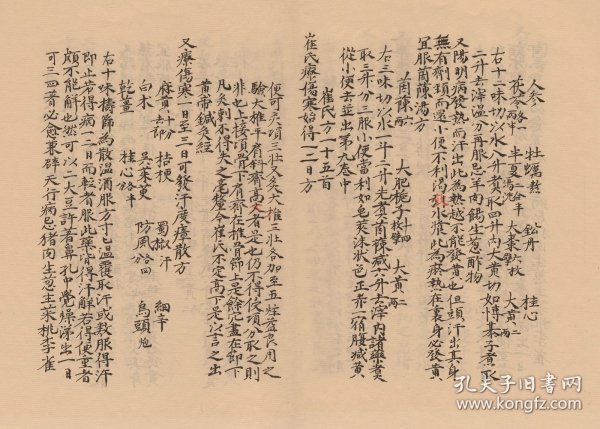 人参　牡蠣熬　鈆丹　桂心
茯苓各兩半　半夏二合半湯洗　大棗六枚　大黄二兩
右十二味切以水八升煮取四升内大黄切如博棊子煮取
二升去滓温分再服忌羊肉餳生葱酢物
又陽明病發熱而汗出此為熱越不能發黄也但頭汗出其身
無有劑頸而還小便不利渴引水漿此為瘀熱在裏身必發黄
宜服茵陳湯方
茵陳六兩　大肥梔子十四枚擘　大黄二兩
右三味切以水一斗二升先煮茵陳減六升去滓内諸藥煮
取三升分三服小便當利如皂莢沫狀色正赤一宿腹減黄
從小便去並出第九卷中
崔氏方一十五首
崔氏療傷寒始得一二日方
便可灸項三壮又灸大椎三壮各加至五炷益良用之
驗大椎平有斜齊高大者是也仍不得侵項分取之則
非也上接項骨下有脊在椎骨節上是餘穴盡在節下
凡灸刺不得失之毫釐今崔氏不定高下是以言之出
黄帝鍼灸經
又療傷寒一日至三日可發汗度瘴散方
麻黄十分去節　桔梗　蜀椒汗　細辛
白朮　吴茱萸　防風各四分　烏頭炮
乾薑　桂心各五分
右十味擣篩為散温酒服方寸匕温覆取汗或數服得汗
即止若得病一二日而輕者服此藥皆得汗解若得便重者
頗不能解也然可以二大豆許著鼻孔中覺燥涕出一日
可三四著必愈兼辟天行病忌猪肉生葱生菜桃李雀
孔夫子旧书网
www.kongfz.com
孔夫子旧书网
www.kongfz.com